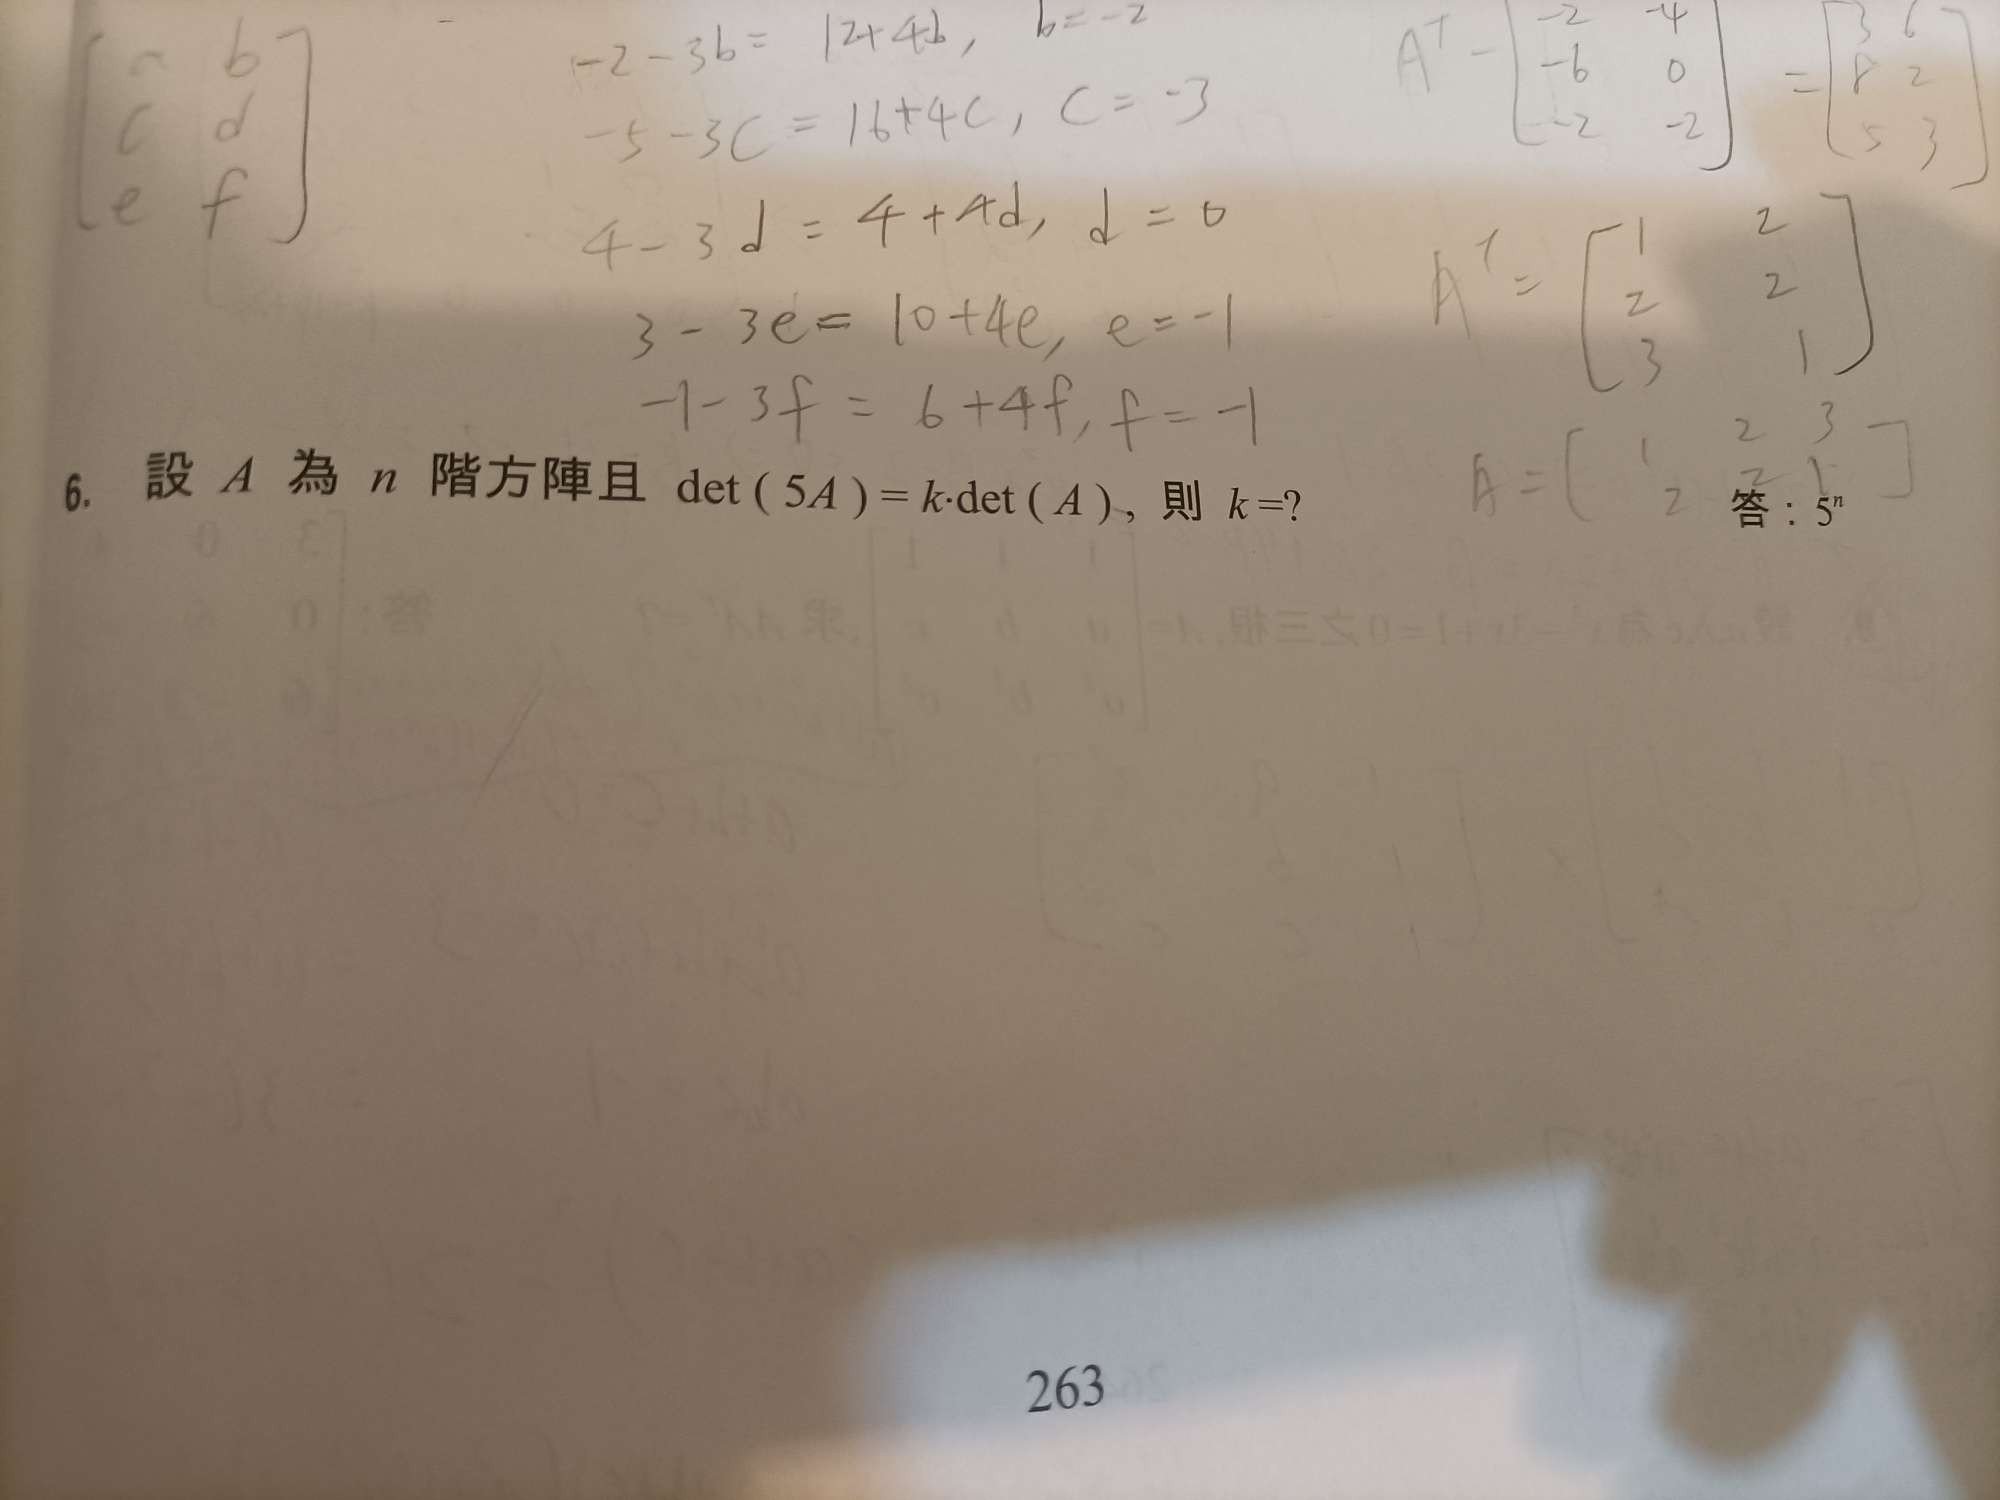 b
c d
e f
-2-3b= 12+4b, b=-2
-5-3c=16+4c, c=-3
4-3d=4+4d, d=0
3-3e=10+4e, e=-1
-1-3f=6+4f, f=-1
-2 -4 3 6
A^T - -6 0 = 8 2
-2 -2 5 3
1 2
A^T= 2 2
3 1
1 2 3
A= 2 2 1
6. 設 A 為 n 階方陣且 det ( 5A ) = k·det ( A ) , 則 k =? 答 : 5ⁿ
263